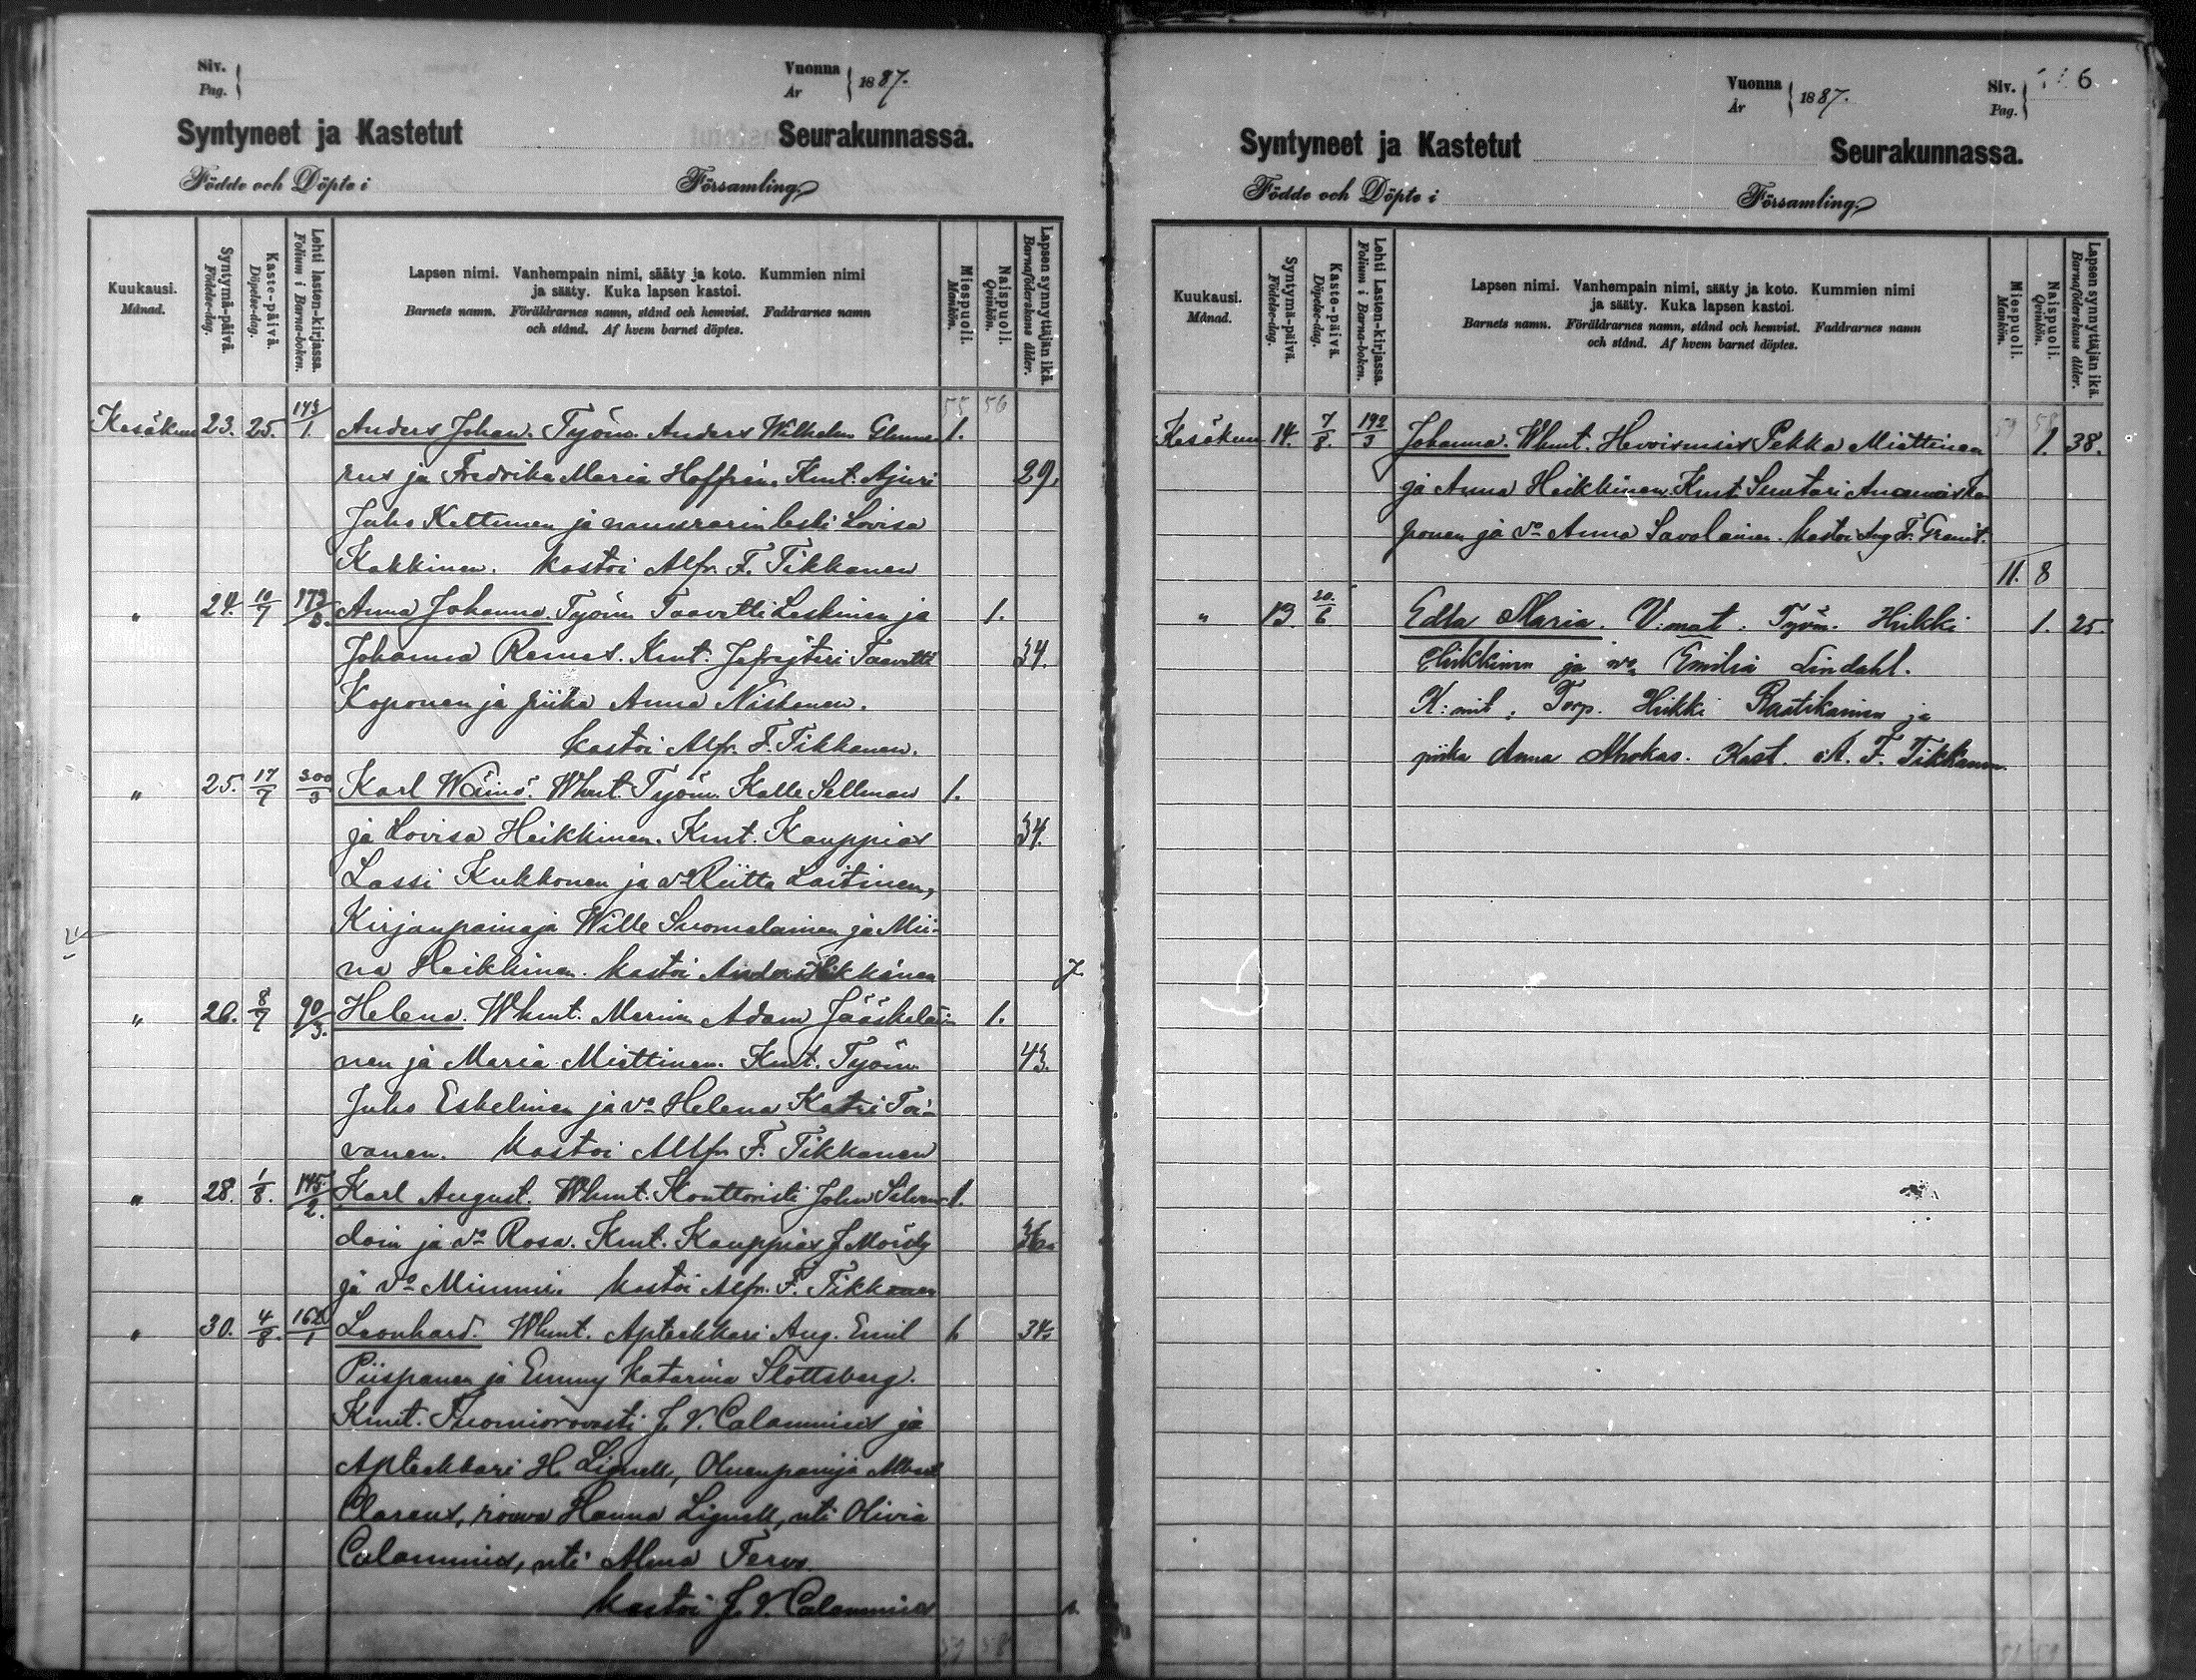 Siv.
Pag.
Vuonna
År
1887.
Syntyneet ja Kastetut Seurakunnassa.
Födde och Döpte i Församling
Kuukausi.
Månad.
Syntymä-päivä.
Födelse-dag.
Kaste-päivä.
Döpelse-dag.
Lehti lasten-kirjassa.
Folium i Barna-boken.
Lapsen nimi. Vanhempain nimi, sääty ja koto. Kummien nimi
ja sääty. Kuka lapsen kastoi.
Barnets namn. Föräldrarnes namn, stånd och hemvist. Faddrarnes namn
och stånd. Af hvem barnet döptes.
Miespuoli.
Mankön.
Naispuoli.
Qvinkön.
Lapsen synnyttäjän ikä.
Barnaföderskans ålder.
55 56
Kesäkuu 23. 25. 143/1. Anders Johan. Työm. Anders Wilhelm 1.
ja Fredrika Maria Hoffrén. Kmt. Ajuri 29.
Juho Kettunen ja muurarin leski Lovisa
Kakkinen. Kastoi Alfr. F. Tikkanen
" 24. 10/7 Anna Johanna. Työm. Taavetti Leskinen ja 1.
Johanna Remes. Kmt. Jefrejteri Taavetti 34.
Koponen ja piika Anna Niskanen.
Kastoi Alfr. F. Tikkanen.
" 25. 17/7 300/3 Karl Wäinö. Whmt. Työm. Kalle Sellman 1.
ja Lovisa Heikkinen. Kmt. Kauppias 34.
Lassi Kukkonen ja vo Riitta Laitinen,
Kirjanpainaja Wille Suomalainen ja Mii-
na Heikkinen. Kastoi Anders
" 26. 8/7 90/3. Helena. Whmt. Adam Jääskeläi- 1.
nen ja Maria Miettinen. Kmt. Työm. 43.
Juho Eskelinen ja vo Helena Katri Toi-
vanen. Kastoi Alfr. F. Tikkanen
" 28. 1/8. 145/2. Karl August. Whmt. Konttoristi John 1.
ja vo Rosa. Kmt. Kauppias J.
ja vo Mimmi. Kastoi Alfr. F. Tikkanen
" 30. 4/8. Leonhard. Whmt. Apteekkari Aug. Emil 1. 34.
Piispanen ja Emmy Katarina Slottsberg.
Kmt. Tuomiorovasti J. V. Calamnius ja
Apteekkari H. Lignell, Oluenpanija Albert
Clareus, rouva Hanna Lignell, nti Olivia
Calamnius, nti Alma
Kastoi J. V. Calamnius
Siv.
Pag.
6
Vuonna
År
1887.
Syntyneet ja Kastetut Seurakunnassa.
Födde och Döpte i Församling
Kuukausi.
Månad.
Syntymä-päivä.
Födelse-dag.
Kaste-päivä.
Döpelse-dag.
Lehti Lasten-kirjassa.
Folium i Barna-boken.
Lapsen nimi. Vanhempain nimi, sääty ja koto. Kummien nimi
ja sääty. Kuka lapsen kastoi.
Barnets namn. Föräldrarnes namn, stånd och hemvist. Faddrarnes namn
och stånd. Af hvem barnet döptes.
Miespuoli.
Mankön.
Naispuoli.
Qvinkön.
Lapsen synnyttäjän ikä.
Barnaföderskans ålder.
Kesäkuu 14. 7/8. 192/3 Johanna. Whmt. Pekka Miettinen 1. 38.
ja Anna Heikkinen. Kmt. Suutari
ponen ja vo Anna Savolainen. Kastoi Aug. F. Granit.
11. 8
" 13 20./6 Edla Maria. V:mat. Työm. Heikki 1. 25.
ja vo Emilia Lindahl.
K:mit. Torp. Heikki Rautikainen ja
piika Anna Ahokas. Kast. A. F. Tikkanen.